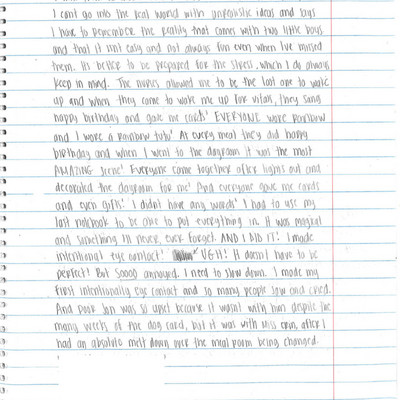 I can't go into the real world with unrealistic ideas and
I have to remember the reality that comes with two little boys
and that it isn't easy and not always fun even when I've missed
them. Its better to be prepared for the stress, which I do always
keep in mind. The nurses allowed me to be the last one to wake
up and when they came to wake me up for vitals, they sang
happy birthday and gave me cards! EVERYONE wore rainbow
and I wore a rainbow tutu! At every meal they did happy
birthday and when I went to the dayroom it was the most
AMAZING scene! Everyone came together after lights out and
decorated the dayroom for me! And everyone gave me cards
and even gifts! I didn't have any words! I had to use my
last notebook to be able to put everything in. It was magical
and something I'll never, ever forget. AND I DID IT! I made
intentional eye contact! UGH! It doesn't have to be
perfect! But soooo annoyed. I need to slow down. I made my
first intentionally eye contact and so many people saw and cried.
And poor Jon was so upset because it wasn't with him despite the
many weeks of the dog card, but it was with Miss Erin, after I
had an absolute melt down over the meal poem being changed.